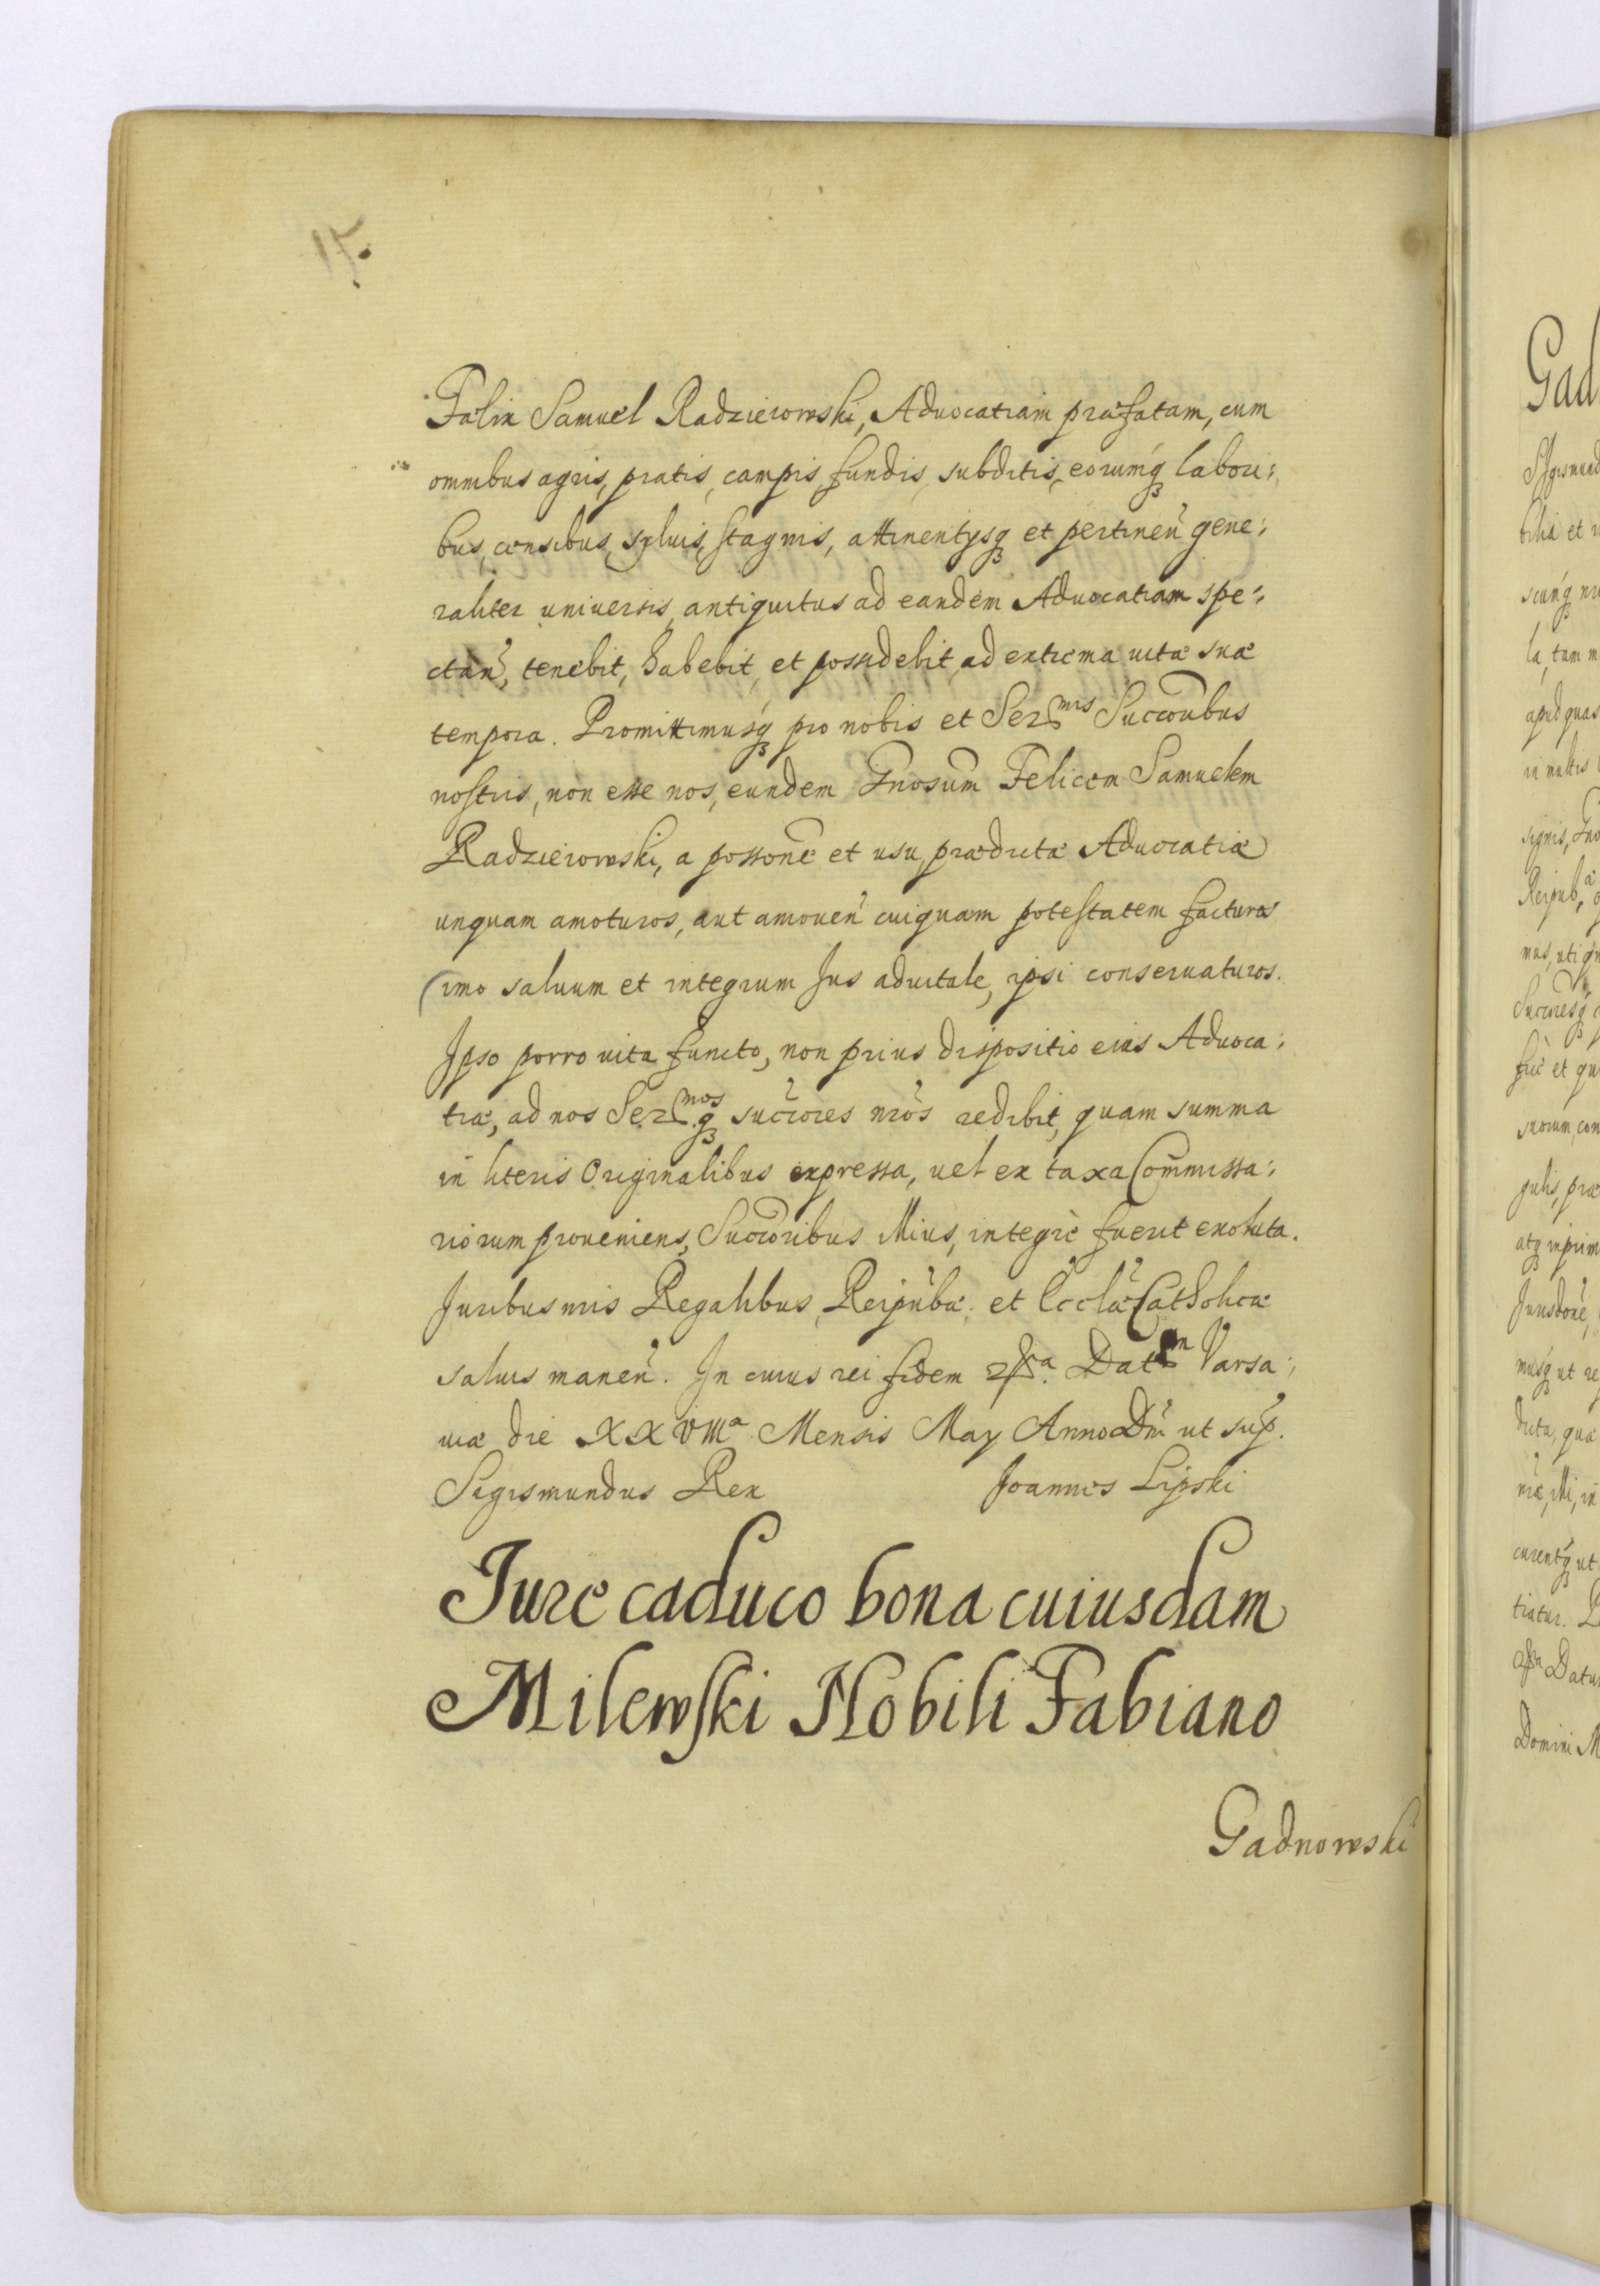 17.
Felix Samuel Radzieiowski, Aduocatiam præfatam, cum
omnibus agris, pratis, campis, fundis, subditis, eorumq₃ labori:
bus, censibus, syluis, stagnis, attinentijsq₃ et pertineñ gene:
raliter uniuersis, antiquitus ad eandem Aduocatiam spe:
ctañ, tenebit, habebit, et possidebit, ad extrema uitæ suæ
tempora. Promittimusq₃ pro nobis et Serᵐⁱˢ Succoribus
nostris, non esse nos, eundem Gnosum Felicem Samuelem
Radzieiowski, a possone et usu, prædictæ Aduocatiæ
unquam amoturos, aut amoueñ cuiquam potestatem facturos
imo saluum et integrum Jus aduitale, ipsi conseruaturos.
Ipso porro uita functo, non prius dispositio eius Aduoca:
tiæ, ad nos Serᵐᵒˢq₃ succores nrõs redibit, quam summa
in literis Originalibus expressa, uel ex taxa Commissa:
riorum proueniens, Succoribus illius, integrè fuerit exoluta.
Juribus nris Regalibus, Reipubæ. et Ecclæ Catholicæ
saluis maneñ. In cuius rei fidem Datᵐ Varsa:
uiæ die XXVIIIᵃ Mensis May Anno Dni ut sup.
Sigismundus Rex Joannes Lipski
Jure caduco bona cuiusdam
Milewski Nobili Fabiano
Gadnowski